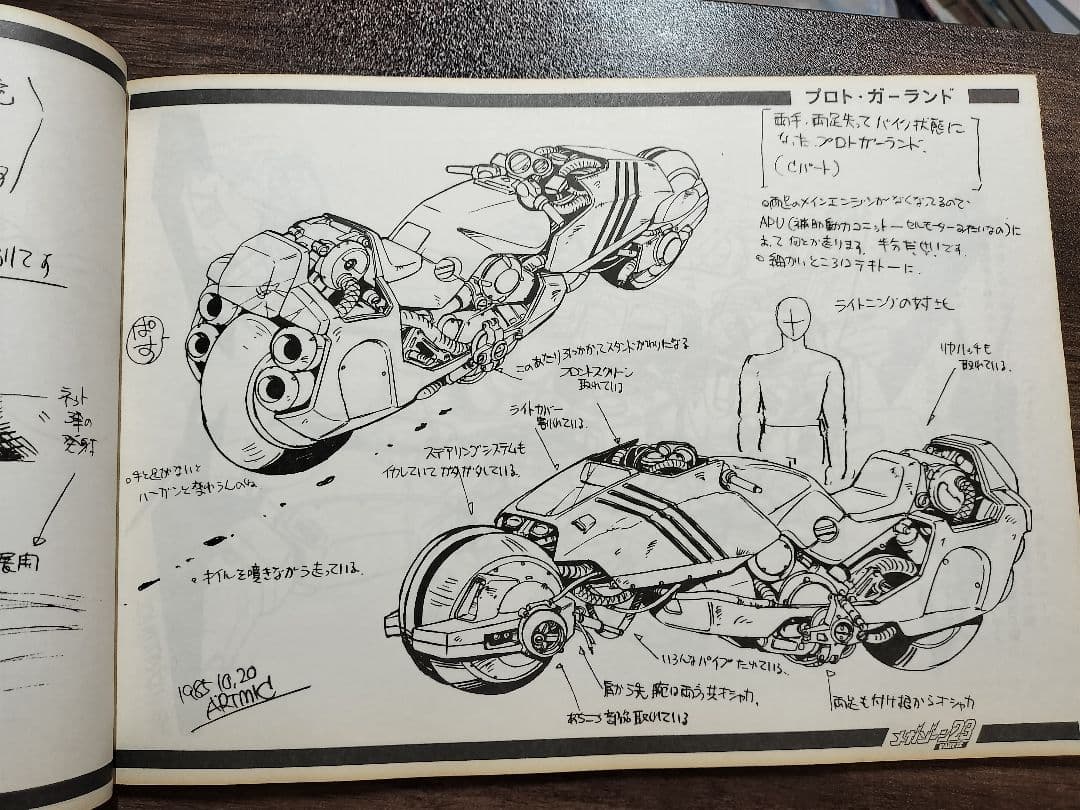 プロト・ガーランド
両手、両足失ってバイク状態に
なったプロトガーランド.
(Cパート)
両足のメインエンジンがなくなってるので
APU(補助動力ユニット―セルモーターみたいなの)に
よって何とか走ります.
細かいところはテキトーに.
ライトニングの対比
リヤハッチも
取れている.
このあたり引っかかってスタンドがわりになる
フロントスクリーン
取れている
ライトカバー
割れている.
ステアリングシステムも
イカレていてガタガタしている.
ぱす
手と足がないと
ハーガンと変わらんのね
オイルを噴きながら走っている.
いろんなパイプたれている.
肩から先、腕は両方共オシャカ.
あちこち部品取れている
両足も付け根からオシャカ
1985.10.20
ARTMIC
メガゾーン23
ネット
弾の
発射
展用